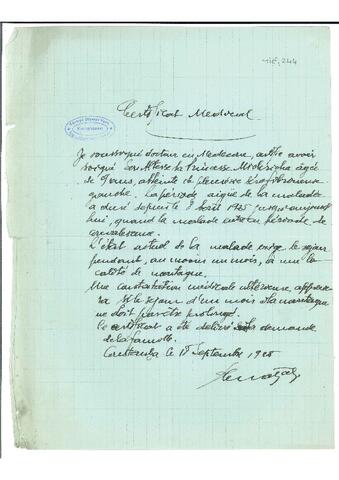 Certificat Medical
Je soussigné docteur en Médecine, certifie avoir
soigné Son Altesse la Princesse
de 9 ans, atteinte de pleurésie
gauche. La période aigue de la maladie
a duré depuis le 8 Août 1925 jusqu'aujourd
hui, quand la malade entre en période de
convalescence.
L'état actuel de la malade exige le sejour
pendant, au moins un mois, à une lo
calité de montagne.
Une constatation médicale ultérieure apprecie
ra si le sejour d'un mois à la montagne
ne doit pas être prolongé.
Ce certificat a été délivré à la demande
de la famille.
Constantza le 18 Septembre 1925